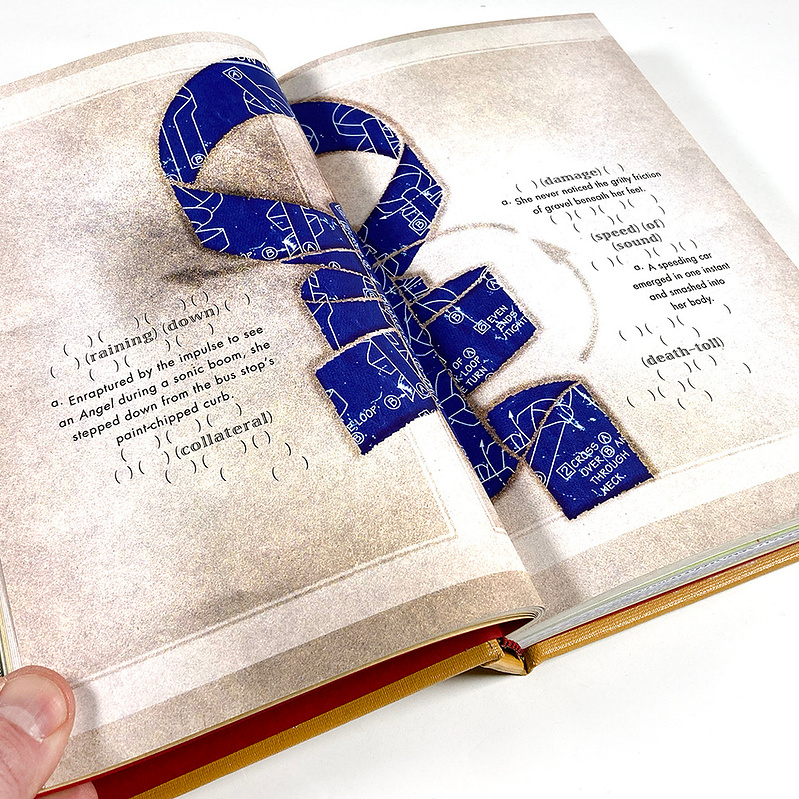 ( ) ( ) ( )
( ) (raining) (down) ( )
( ) ( ) ( ) ( )
a. Enraptured by the impulse to see
an Angel during a sonic boom, she
stepped down from the bus stop's
paint-chipped curb.
( ) ( ) ( )
( ) ( ) (collateral)
( ) ( ) ( ) ( ) ( )
( ) (damage) ( )
a. She never noticed the gritty friction
of gravel beneath her feet.
( ) ( ) ( ) ( )
( ) (speed) (of)
(sound)
( ) ( ) ( ) ( )
a. A speeding car
emerged in one instant
and smashed into
her body.
( ) ( ) ( )
(death-toll)
( ) ( ) ( ) ( )
A
B
B
A
B
A
B
LOOP.
A
B
B
6 EVEN
ENDS
TIGHT
OF A
-LOOP
E TURN
B
2 CROSS A
OVER B AN
THROUGH
NECK